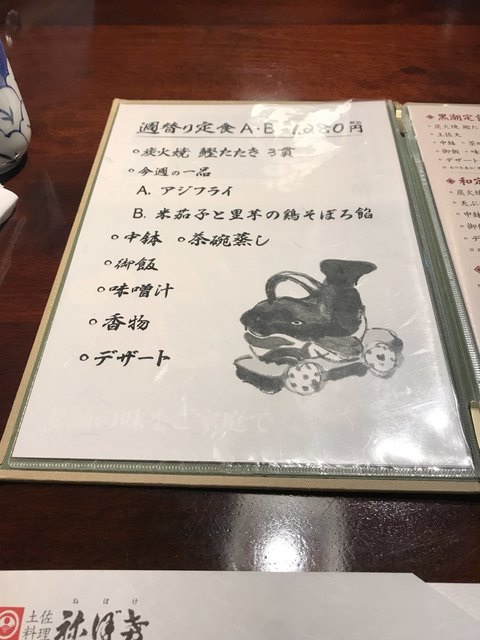 週替り定食 A・B 1,280円
税込
○炭火焼 鰹たたき 3貫
○今週の一品
A. アジフライ
B. 米茄子と里芋の鶏そぼろ餡
○中鉢 ○茶碗蒸し
○御飯
○味噌汁
○香物
○デザート
黒潮定食
炭火焼 鰹た
土佐夫
中鉢 茶碗
御飯 味
デザート
和定
炭火焼
天ぷ
中鉢
御飯
デ
土佐
料理
ねぼけ
祢ぼ希